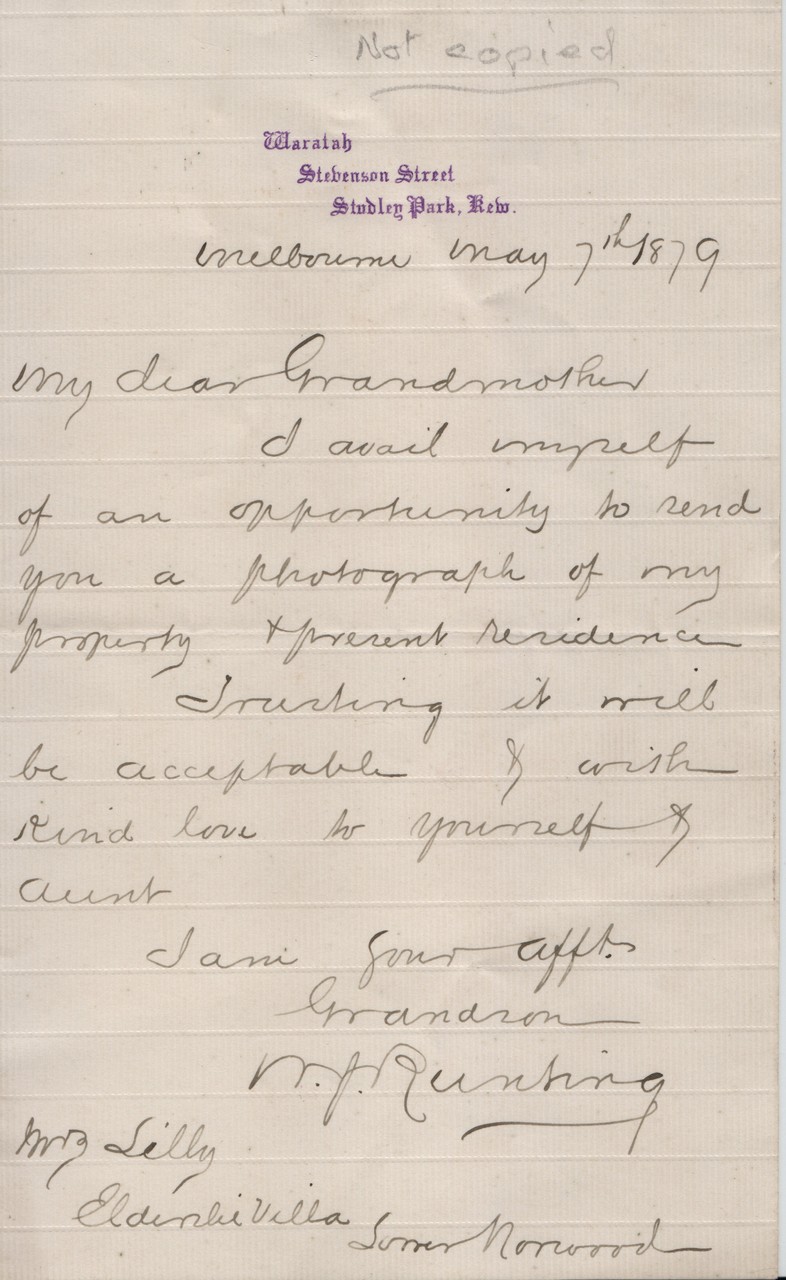 Not copied
Waratah
Stevenson Street
Studley Park, Kew.
Melbourne May 7th 1879
My dear Grandmother
I avail myself
of an opportunity to send
you a photograph of my
property & present residence
Trusting it will
be acceptable & with
Kind love to yourself &
Aunt
I am your afft.
Grandson
W. J. Runting
Mrs Lilly
Elderslie Villa
Lower Norwood